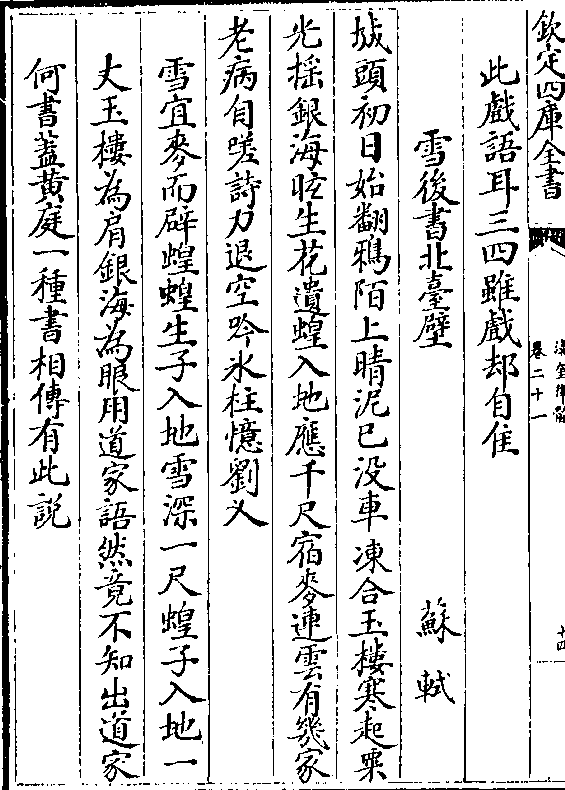 欽定四庫全書
卷二十一
十四
此戲語耳三四雖戲却自佳
雪後書北臺壁
蘇軾
城頭初日始翻鴉陌上晴泥已没車凍合玉樓寒起粟
光揺銀海眩生花遺蝗入地應千尺宿麥連雲有幾家
老病自嗟詩力退空吟氷柱憶劉义
雪宜麥而辟蝗蝗生子入地雪深一尺蝗子入地一
丈玉樓為肩銀海為眼用道家語然竟不知出道家
何書蓋黄庭一種書相傳有此説